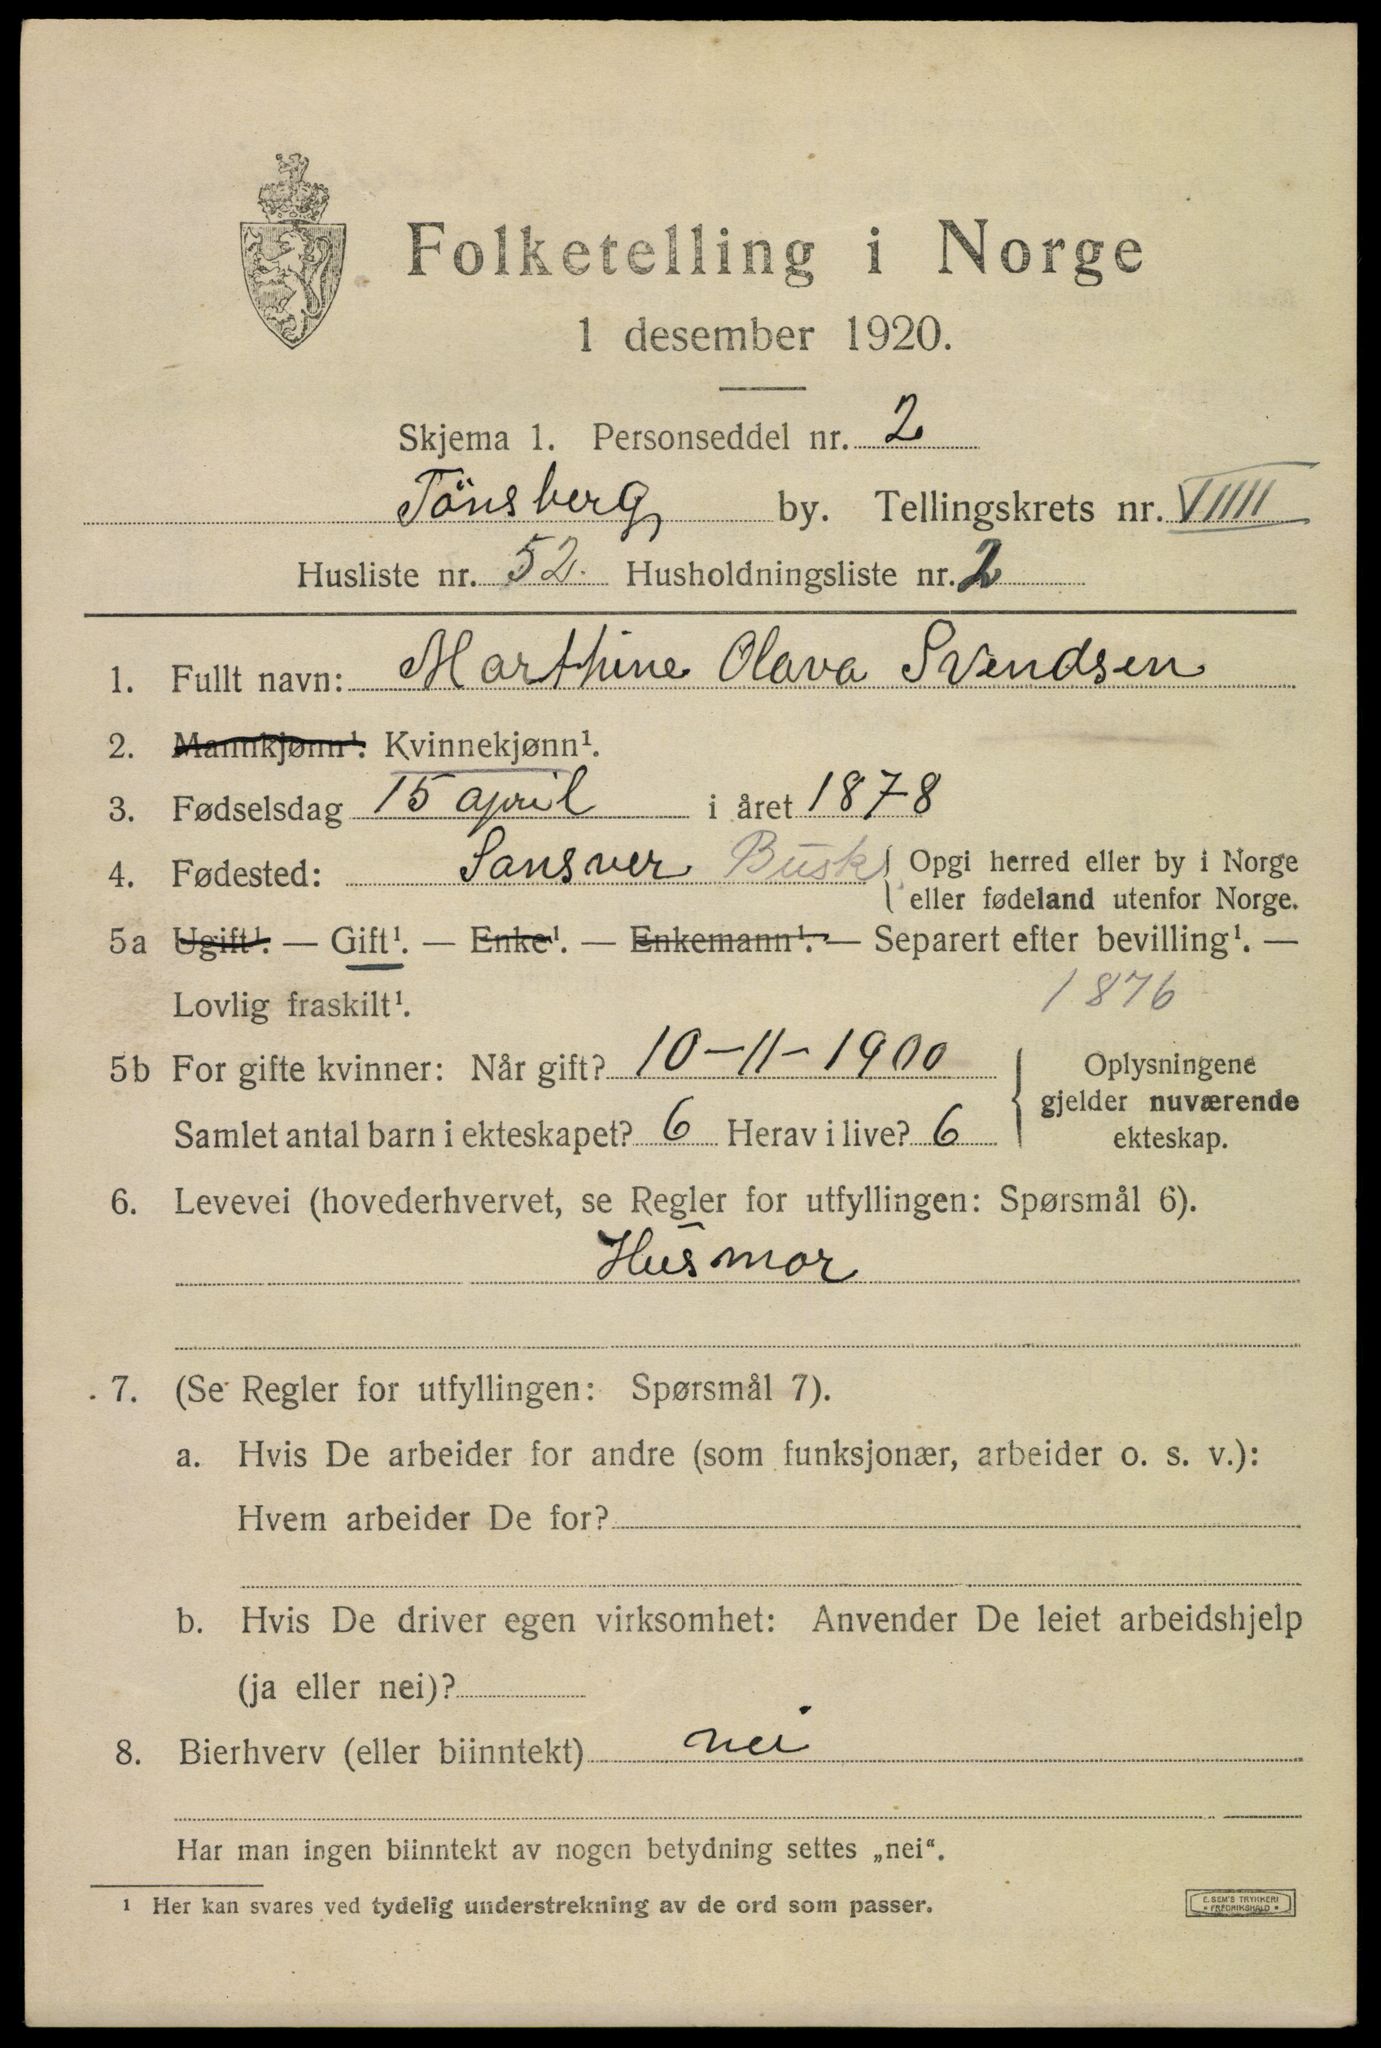 Folketelling i Norge
1 desember 1920.
Skjema 1. Personseddel nr. 2
Tönsberg by. Tellingskrets nr. VIIII
Husliste nr. 52. Husholdningsliste nr. 2
1. Fullt navn: Marthine Olava Svendsen
2. Mannkjønn¹. Kvinnekjønn¹.
3. Fødselsdag 15 april i året 1878
4. Fødested: Sansver Busk. { Opgi herred eller by i Norge
eller fødeland utenfor Norge.
5a Ugift¹. — Gift¹. — Enke¹. — Enkemann¹. — Separert efter bevilling¹. —
Lovlig fraskilt¹. 1876
5b For gifte kvinner: Når gift? 10-11-1900 { Oplysningene
gjelder nuværende
Samlet antal barn i ekteskapet? 6 Herav i live? 6 ekteskap.
6. Levevei (hovederhvervet, se Regler for utfyllingen: Spørsmål 6).
Husmor
7. (Se Regler for utfyllingen: Spørsmål 7).
a. Hvis De arbeider for andre (som funksjonær, arbeider o. s. v.):
Hvem arbeider De for?
b. Hvis De driver egen virksomhet: Anvender De leiet arbeidshjelp
(ja eller nei)?
8. Bierhverv (eller biinntekt) nei
Har man ingen biinntekt av nogen betydning settes „nei“.
¹ Her kan svares ved tydelig understrekning av de ord som passer.
E. SEM'S TRYKKERI
• FREDRIKSHALD •